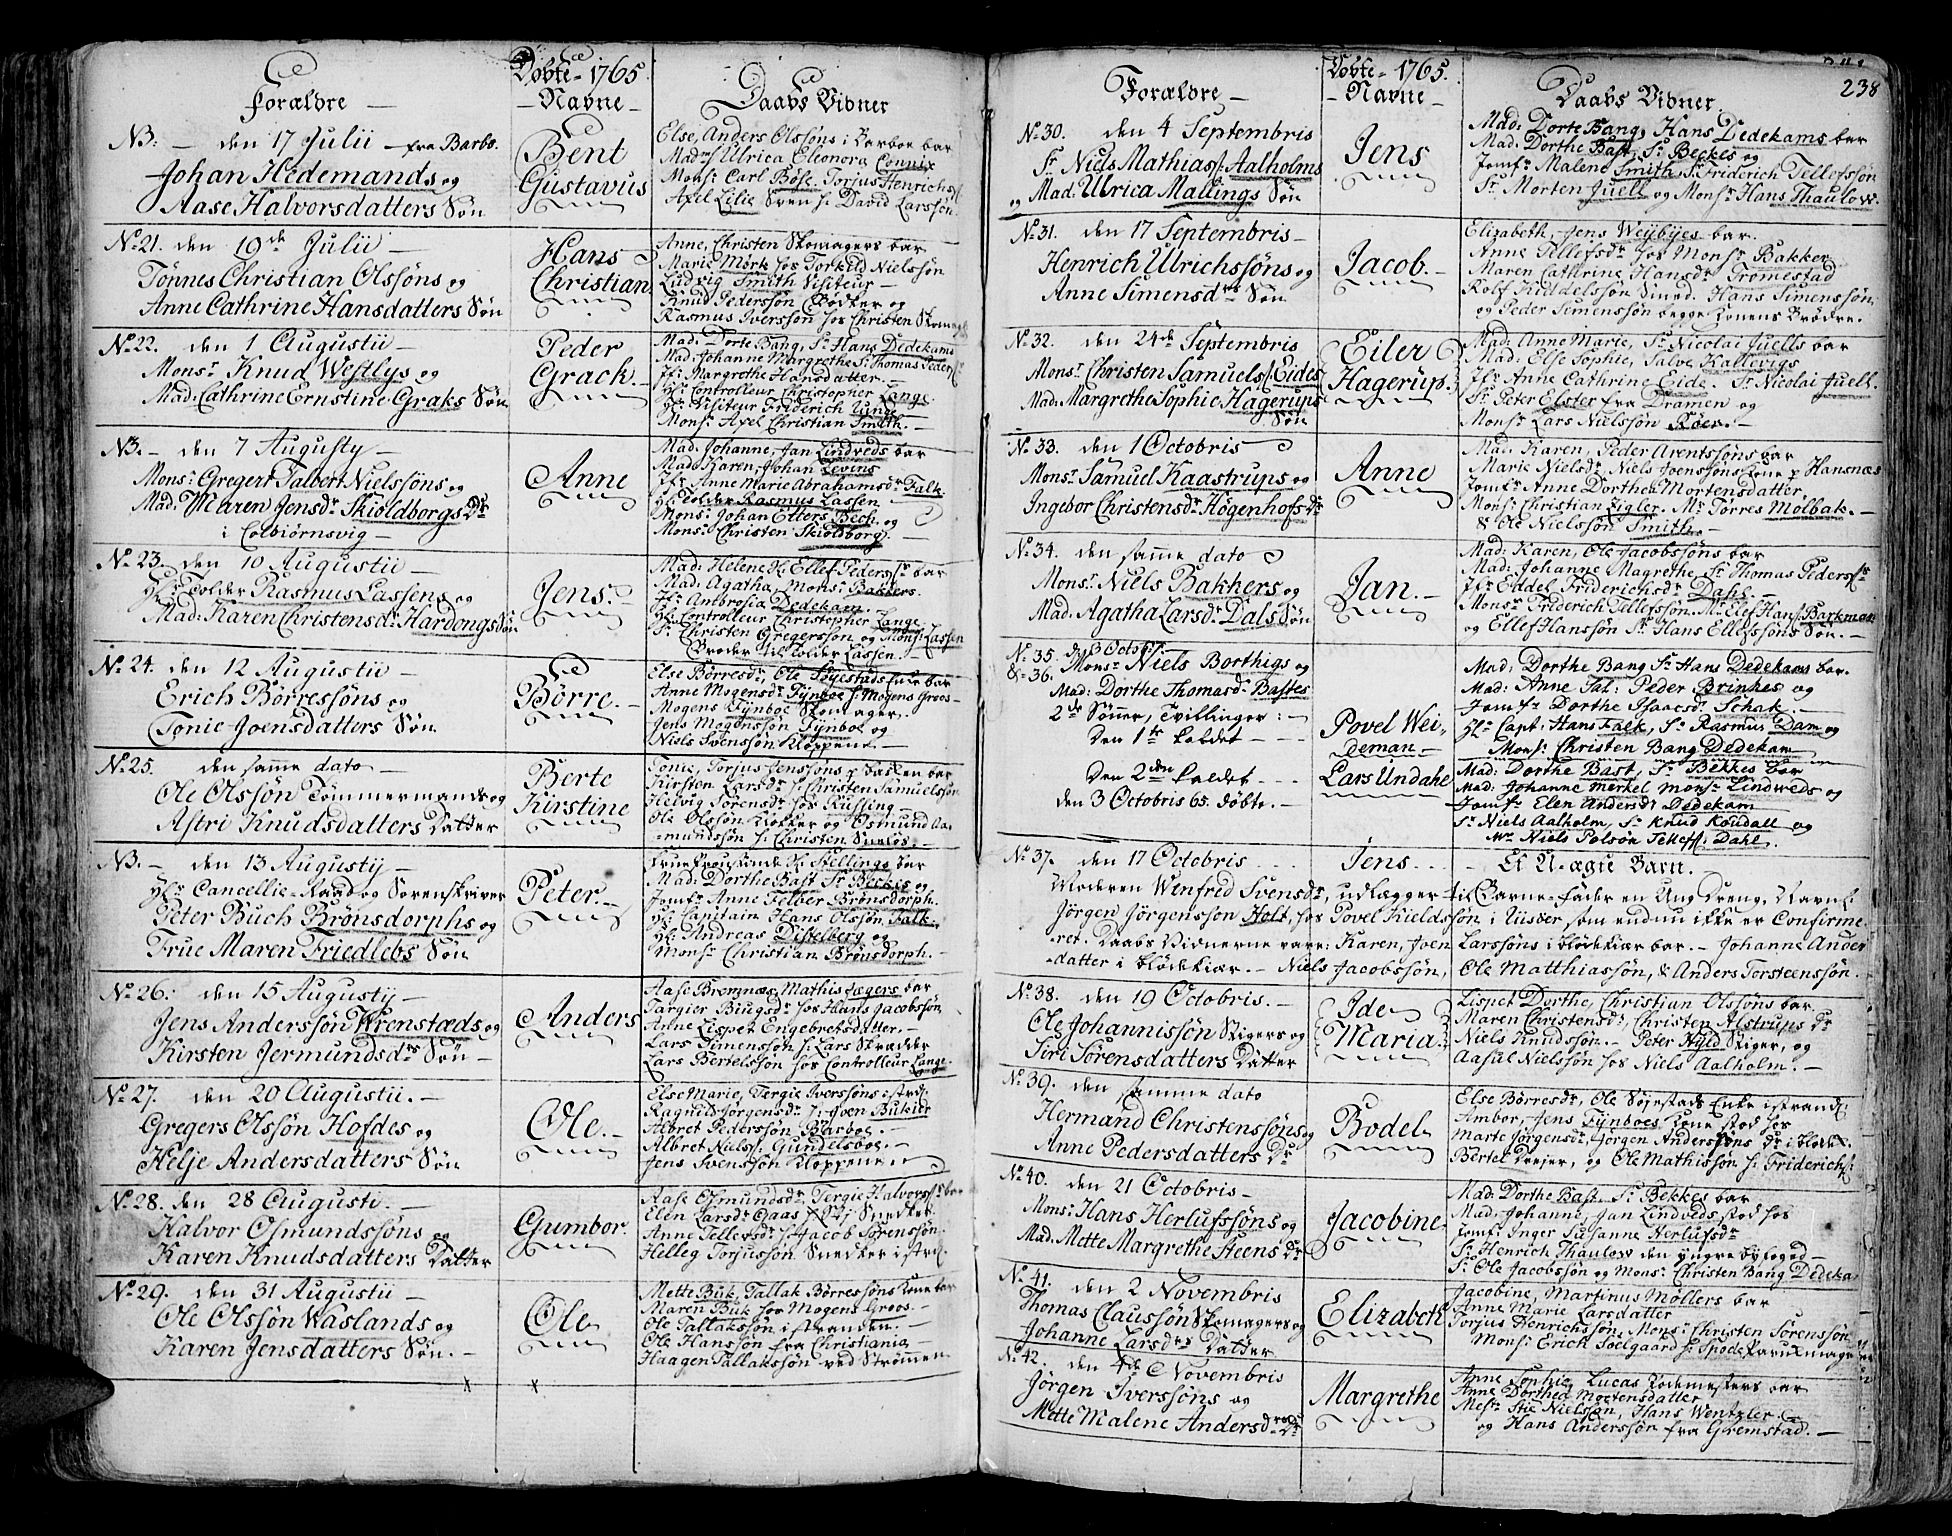 Døbte 1765.
Forældre — Navne — Daabs Vidner
NB: — den 17 Julii — fra Barbo.
Johan Hedemands og
Aase Halvorsdatters Søn
Bent
Gustavus
Else, Anders Olssøns i Barboe bar
Mad: Ulrica Eleonora Connix
Mons: Carl Böse. Torjus Henrichs
Axel Lilie Sven s: David Larssøn.
No 21. den 19de Julii —
Tönnes Christian Olssøns og
Anne Cathrine Hansdatters Søn
Hans
Christian
Anne, Christen Skomagers bar
Marie Mørk hos Torkild Nielssøn
Ludvig Smith Visiteur —
Knud Pedersøn Bødker og
Rasmus Iverssøn hos Christen Skomager
No 22. den 1 Augustii —
Monsr Knud Westlys og
Mad: Cathrine Ernstine Graks Søn
Peder
Grack
Mad: Dorte Bang, Sr Hans Dedekams
Mad: Johanne Margrethe Sr Thomas Peders
Jfr Margrethe Hansdatter. —
Hr Controlleur Christopher Lange
Hr Visiteur Friderich Unge
Monsr Axel Christian Smith. —
NB. — den 7 Augusty —
Mons: Gregert Falbert Nielsøns og
Mad: Maren Jensdr Skioldborgs Dr
i Colbiørnsvig —
Anne
Mad: Johanne, Jan Lindveds bar
Mad: Karen, Johan Levins
Jfr Anne Marie Abrahamsdr Falk
Hr Tolder Rasmus Lassen
Mons: Johan Etters Bech. og
Mons: Christen Skioldborg. —
No 23. den 10 Augustii —
Hr Tolder Rasmus Lassens og
Mad: Karen Christensdr Hardongs Søn
Jens. —
Mad: Helene Hr Ellef Peders bar
Mad: Agatha Mons: Bakkers.
Jfr Ambrosia Dedekam.
Hr Controlleur Christopher Lange
Sr Christen Gregerssøn og Mons: Lassen
Broder til Tolder Lassen.
No 24. den 12 Augustii —
Erich Börressøns og
Tonie Joensdatters Søn
Börre. —
Else Börresdr, Ole Søyestads Enke bar
Anne Mogensdr Fynboe s: Mogens Groos —
Mogens Fynboe Skomager.
Jens Mogenssøn Fynboe og
Niels Svenssøn Kloppene —
No 25. den samme dato —
Ole Olssøn Tømmermands og
Astri Knudsdatters Datter
Berte
Kirstine
Tonie, Torjus Jenssøns p Basken bar
Kirsten Larsdr s: Christen Samuelssøn
Helvig Sørensdr hos Russing —
Ole Olssøn Klokker og Osmund Aa-
mundssøn s: Christen Sneløs. —
NB. — den 13 Augustij —
Hr Cancellie-Raad og Sorenskriver
Peter Buch Brönsdorphs og
Frue Maren Friedlebs Søn
Peter. —
Mad: Dorthe Bast Sr Beckes og
Jomfr Anne Felber Brönsdorph.
Hr Capitain Hans Olssøn Falk
Hr Andreas Distelberg og
Monsr Christian Brönsdorph. —
No 26: den 15 Augustij —
Jens Anderssøn Wrenstæds og
Kirsten Jermundsdrs Søn —
Anders
Aase Bremnæs, Mathis Jægers bar
Targier Biugsdr hos Hans Jacobssøn
Anne Lispet Engebretsdatter. —
Lars Simenssøn s: Lars Skræder
Lars Bertelssøn hos Controlleur Lange.
No 27. den 20 Augustii. —
Gregers Olssøn Hofdes og
Helje Andersdatters Søn
Ole. —
Else Marie, Tergie Iverssøns i strd:
Ragnild Jörgensdr s: Joen Bukier
Albret Pederssøn Barboe. —
Albret Niels: Gundelsboe. —
Jens Svenssøn Kloppene
No 28. den 28 Augusti. —
Halvor Osmundssøns og
Karen Knudsdatters Datter
Gumbor.
Aase Osmundsdr, Tergie Halvors: bar
Elen Larsdr Claas Snedker
Anne Tellefsdr s: Jacob Sørenssøn
Helleg Torjussøn Snedker i strd:
No 29. den 31 Augustii —
Ole Olssøn Waslands og
Karen Jensdatters Søn. —
Ole
Mette Buk, Tallak Börressøns Kone bar
Maren Buk hos Mogens Groos. —
Ole Tallakssøn i stranden. —
Ole Hanssøn fra Christiania —
Haagen Tallakssøn ved Strømmen
x x
238
Døbte 1765.
Forældre — Navne — Daabs Vidner
No 30. den 4 Septembris
Sr Niels Mathias: Aalholms
og Mad: Ulrica Mallings Søn
Jens
Mad: Dorte Bang, Hans Dedekams bar
Mad: Dorthe Bast, Sr Beckes og
Jomfr Malene Smith Sr Friderich Tellefssøn
Sr Morten Juell og Monsr Hans Thaulow.
No 31. den 17 Septembris —
Henrich Ulrichssøns og
Anne Simensdrs Søn
Jacob. —
Elizabeth, Jens Weybyes bar.
Anne Tellefsdr hos Monsr Bakker
Maren Cathrine Hansdr Tromestad
Rolf Kiddelssøn Smed. Hans Simenssøn
og Peder Simenssøn begge Konens Brødre.
No 32. den 24de Septembris
Monsr Christen Samuels: Eides
Mad: Margrethe Sophie Hagerups
Søn
Eiler
Hagerup.
Mad: Anne Marie, Sr Nicolai Juells bar
Mad: Else Sophie, Salve Kallevigs
Jfr Anne Cathrine Eide. Sr Nicolai Juell.
Sr Peter Elster fra Dramen og
Monsr Lars Nielssøn Röer. —
No 33. den 1 Octobris
Monsr Samuel Kaastrups og
Ingebor Christensdr Högenhofs Dr
Anne
Mad: Karen, Peder Arentssøns bar
Marie Nielsdr Niels Joenssøns Kone p Hansnæs
Jomfr Anne Dorthea Mortensdatter,
Monsr Christian Zigler. Mr Torres Molbak. —
& Ole Nielssøn Smith. —
No 34. den samme dato
Monsr Niels Bakkers og
Mad. Agatha Larsdr Dals Søn
Jan. —
Mad: Karen, Ole Jacobssøns bar
Mad: Johanne Magrethe, Sr Thomas Peders
Jfr Eddel Friderichsdr Dahl —
Monsr Friderich Tellefssøn. Mr Elef Hans: Barkman
og Ellef Hanssøn Sr Hans Ellefssøns Søn. —
No 35 & 36. d. 3 Octobr.
Monsr Niels Borthigs og
Mad: Dorthe Thomasdr Bastes
2de Sønner, Tvillinger: —
Den 1te kaldet —
Den 2den kaldet - - -
den 3 Octobris 65. døbte. —
Povel Wei-
deman —
Lars Undahl
Mad: Dorthe Bang Sr Hans Dedekams bar.
Mad: Anne Tal: Peder Brinhes og
Jomfr Dorthe Isaacsdr Schak. —
Hr Capt: Hans Falk, Sr Rasmus Dam og
Mons: Christen Bang Dedekam
Mad: Dorthe Bast, Sr Bekkes bar
Mad: Johanne Merkel Monsr Lindveds og
Jomfr Elen Andersdr Dedekam
Sr Niels Aalholm, Sr Knud Kondall og
Mr Niels Polsøn Tellefs: Dahl.
No 37. den 17 Octobris Jens. — Et U-ægte Barn.
Moderen Wenfred Svensdr, udlægger til Barne-fader en Ung Dreng, Navnl:
Jörgen Jörgenssøn Holt, hos Povel Kieldssøn i Uisder som endnu ikke er Confirme-
ret. Daabs Vidnerne vare: Karen, Joen Larssøns i blødekiær bar. — Johanne Anders
datter i blödekiær. — Niels Jacobssøn, Ole Matthiassøn, & Anders Torsteenssøn.
No 38. den 19 Octobris. —
Ole Johannissøn Stigers og
Siri Sørensdatters Datter
Ide
Maria
Lispet Dorthe, Christian Olssøns bar
Maren Christensdr, Christen Alstrups Dr
Niels Knudssøn. — Peter Hyld Stiger, og
Aasul Nielssøn hos Niels Aalholm. —
No 39. den samme dato
Hermand Christenssøns og
Anne Pedersdatters Dr
Bodel
Else Börresdr, Ole Söjestads Enke i strand:
Ambor, Jens Fynboes Kone stod hos
Marte Jörgensdr, Jörgen Anderssøns Dr i blödk.
Bertel Drejer, og Ole Mathissøn s: Friderichs:
No 40. den 21 Octobris —
Mons: Hans Herlufssøns og
Mad: Mette Margrethe Steens Dr
Jacobine
Mad: Dorthe Bast. Sr Bekkes bar
Mad: Johanne, Jan Lindveds stod hos
Jomfr Inger Susanne Herlufsdr
Sr Henrich Thaulow den yngre byfoged —
Sr Ole Jacobssøn og Monsr Christen Bang Dedeka
No 41. den 2 Novembris
Thomas Claussøn Skomagers og
Johanne Larsdrs Datter
Elizabeth
Jacobine, Martinus Möllers bar
Anne Marie Larsdatter
Torjus Henrichssøn, Mons: Christen Sörenssøn
Mons: Erich Soelgaard s: Spode Parukmager
No 42. den 4de Novembris
Jörgen Iverssøns og
Mette Malene Andersdrs Dr
Margrethe
Anne Sophie, Lucas Rodemesters bar
Anne Dorthea Mortensdatter
Mesr Stie Nielssøn, Hans Wentzler
og Hans Anderssøn fra Gremstad. —